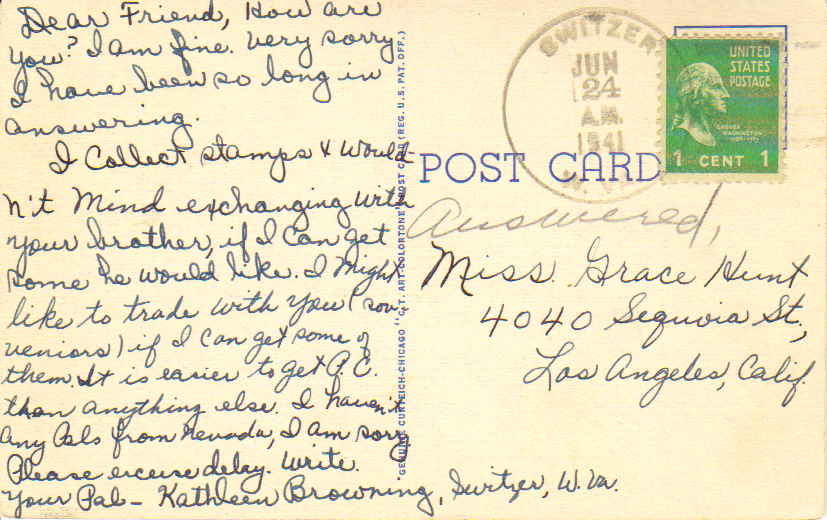 Dear Friend, How are
you? I am fine. Very sorry
I have been so long in
answering.
I Collect stamps & would-
n't Mind exchanging with
your brother, if I can get
some he would like. I Might
like to trade with you (sou-
veniors) if I can get some of
them. It is easier to get P.C.
than anything else. I haven't
any Pals from Nevada, I am sorry
Please excuse delay. Write.
Your Pal - Kathleen Browning, Switzer, W. Va.
GENUINE CURTEICH-CHICAGO "C.T. ART-COLORTONE" POST CARD (REG. U.S. PAT. OFF.)
SWITZER
JUN
24
A.M.
1941
W. VA.
UNITED
STATES
POSTAGE
GEORGE
WASHINGTON
1 CENT 1
POST CARD
Answered,
Miss. Grace Hunt
4040 Sequoia St.,
Los Angeles, Calif.